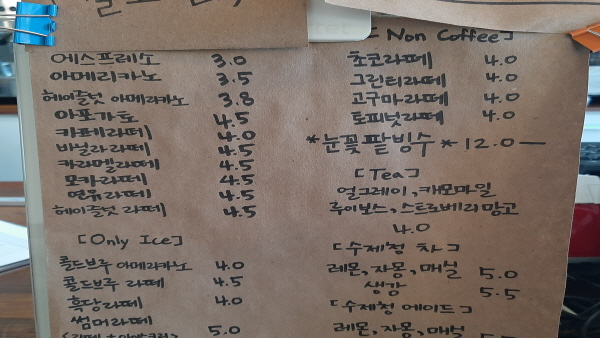 에스프레소 3.0
아메리카노 3.5
헤이즐넛 아메리카노 3.8
아포가토 4.5
카페라떼 4.0
바닐라라떼 4.5
카라멜라떼 4.5
모카라떼 4.5
연유라떼 4.5
헤이즐넛 라떼 4.5
[Only Ice]
콜드브루 아메리카노 4.0
콜드브루 라떼 4.5
흑당라떼 4.0
썸머라떼
5.0
[Non Coffee]
초코라떼 4.0
그린티라떼 4.0
고구마라떼 4.0
토피넛라떼 4.0
*눈꽃팥빙수* 12.0
[Tea]
얼그레이, 캐모마일
루이보스, 스트로베리망고
4.0
[수제청 차]
레몬, 자몽, 매실 5.0
생강 5.5
[수제청 에이드]
레몬, 자몽, 매실